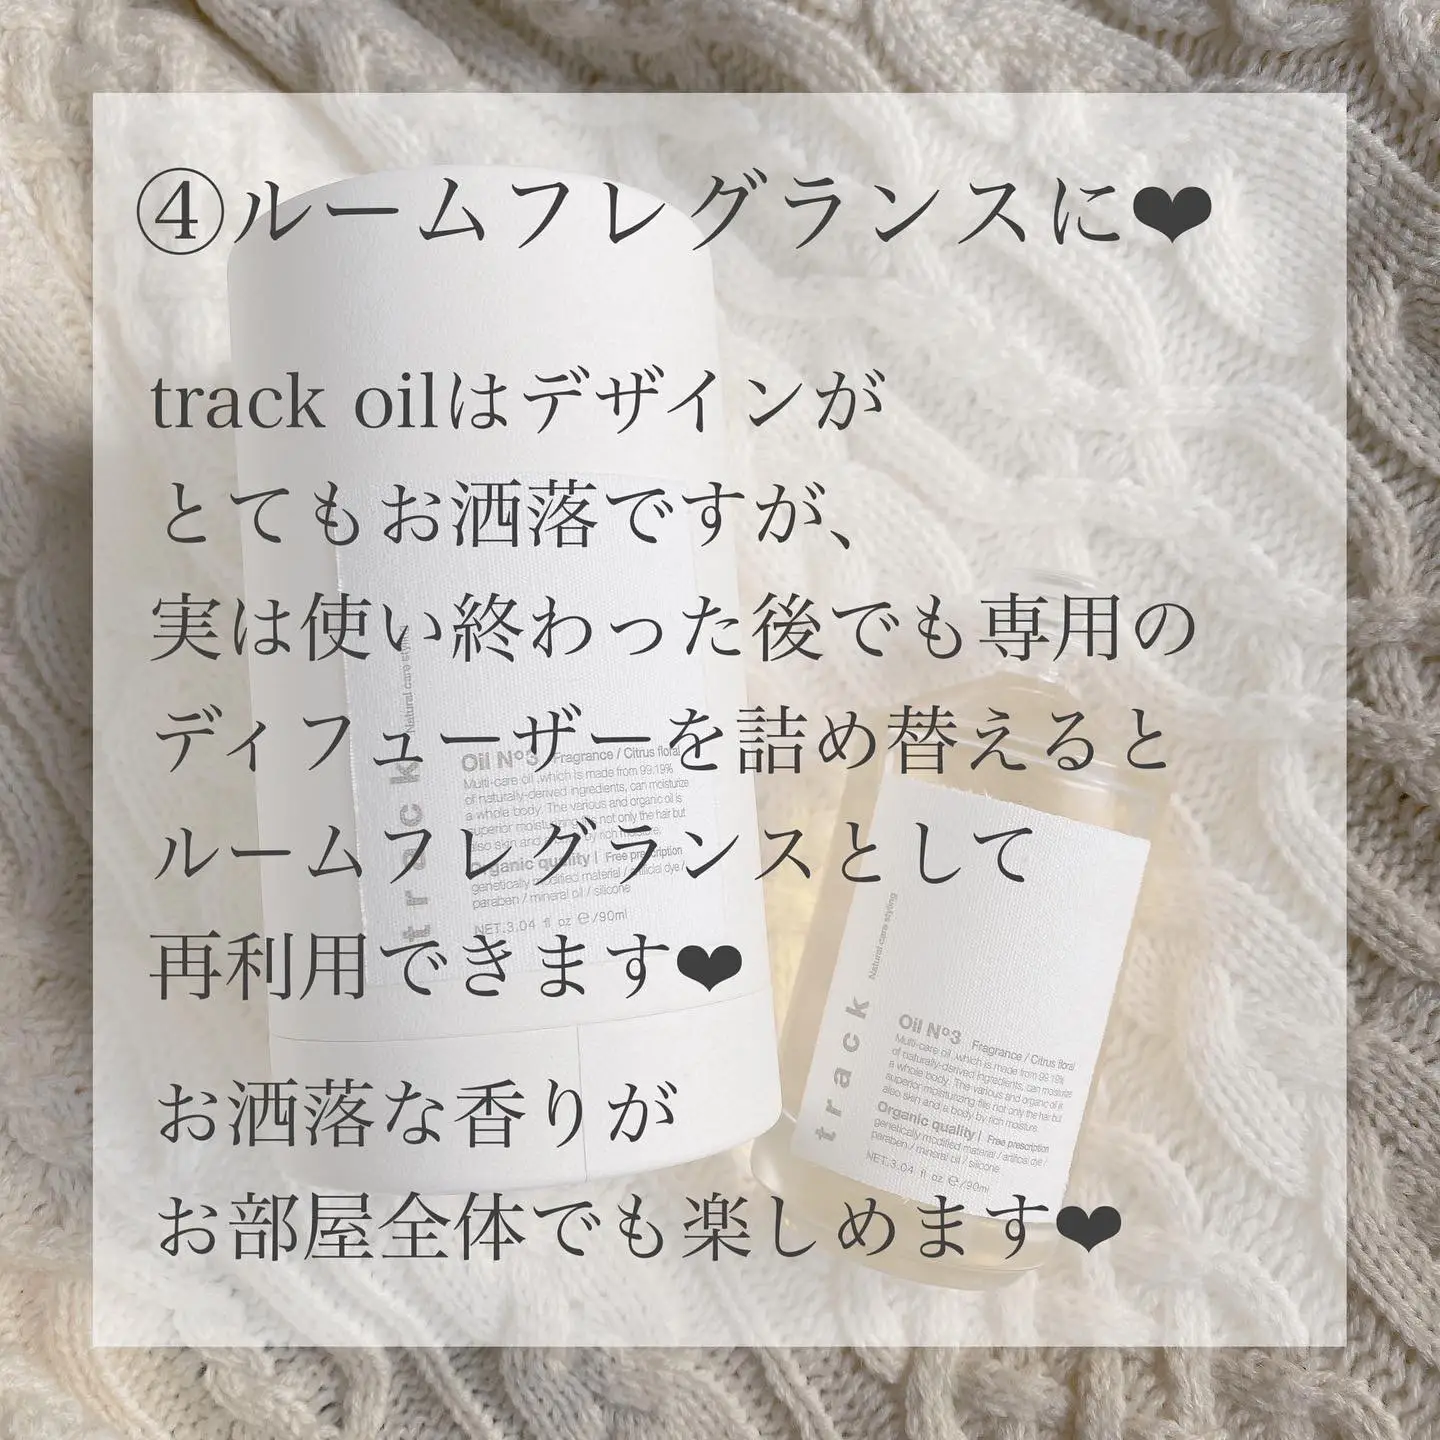 ④ルームフレグランスに❤
track oilはデザインが
とてもお洒落ですが、
実は使い終わった後でも専用の
ディフューザーを詰め替えると
ルームフレグランスとして
再利用できます❤
お洒落な香りが
お部屋全体でも楽しめます❤
track
Natural care styling
Oil Nº3 Fragrance / Citrus floral
Multi-care oil ,which is made from 99.19%
of naturally-derived ingredients, can moisturize
a whole body. The various and organic oil is
superior moisturizing fills not only the hair but
also skin and by rich moisture.
Organic quality | Free prescription
genetically modified material / artificial dye /
paraben / mineral oil / silicone
NET.3.04 fl oz e/90ml
track
Natural care styling
Oil Nº3 Fragrance / Citrus floral
Multi-care oil ,which is made from 99.19%
of naturally-derived ingredients, can moisturize
a whole body. The various and organic oil is
superior moisturizing fills not only the hair but
also skin and a body by rich moisture.
Organic quality | Free prescription
genetically modified material / artificial dye /
paraben / mineral oil / silicone
NET.3.04 fl oz e/90ml